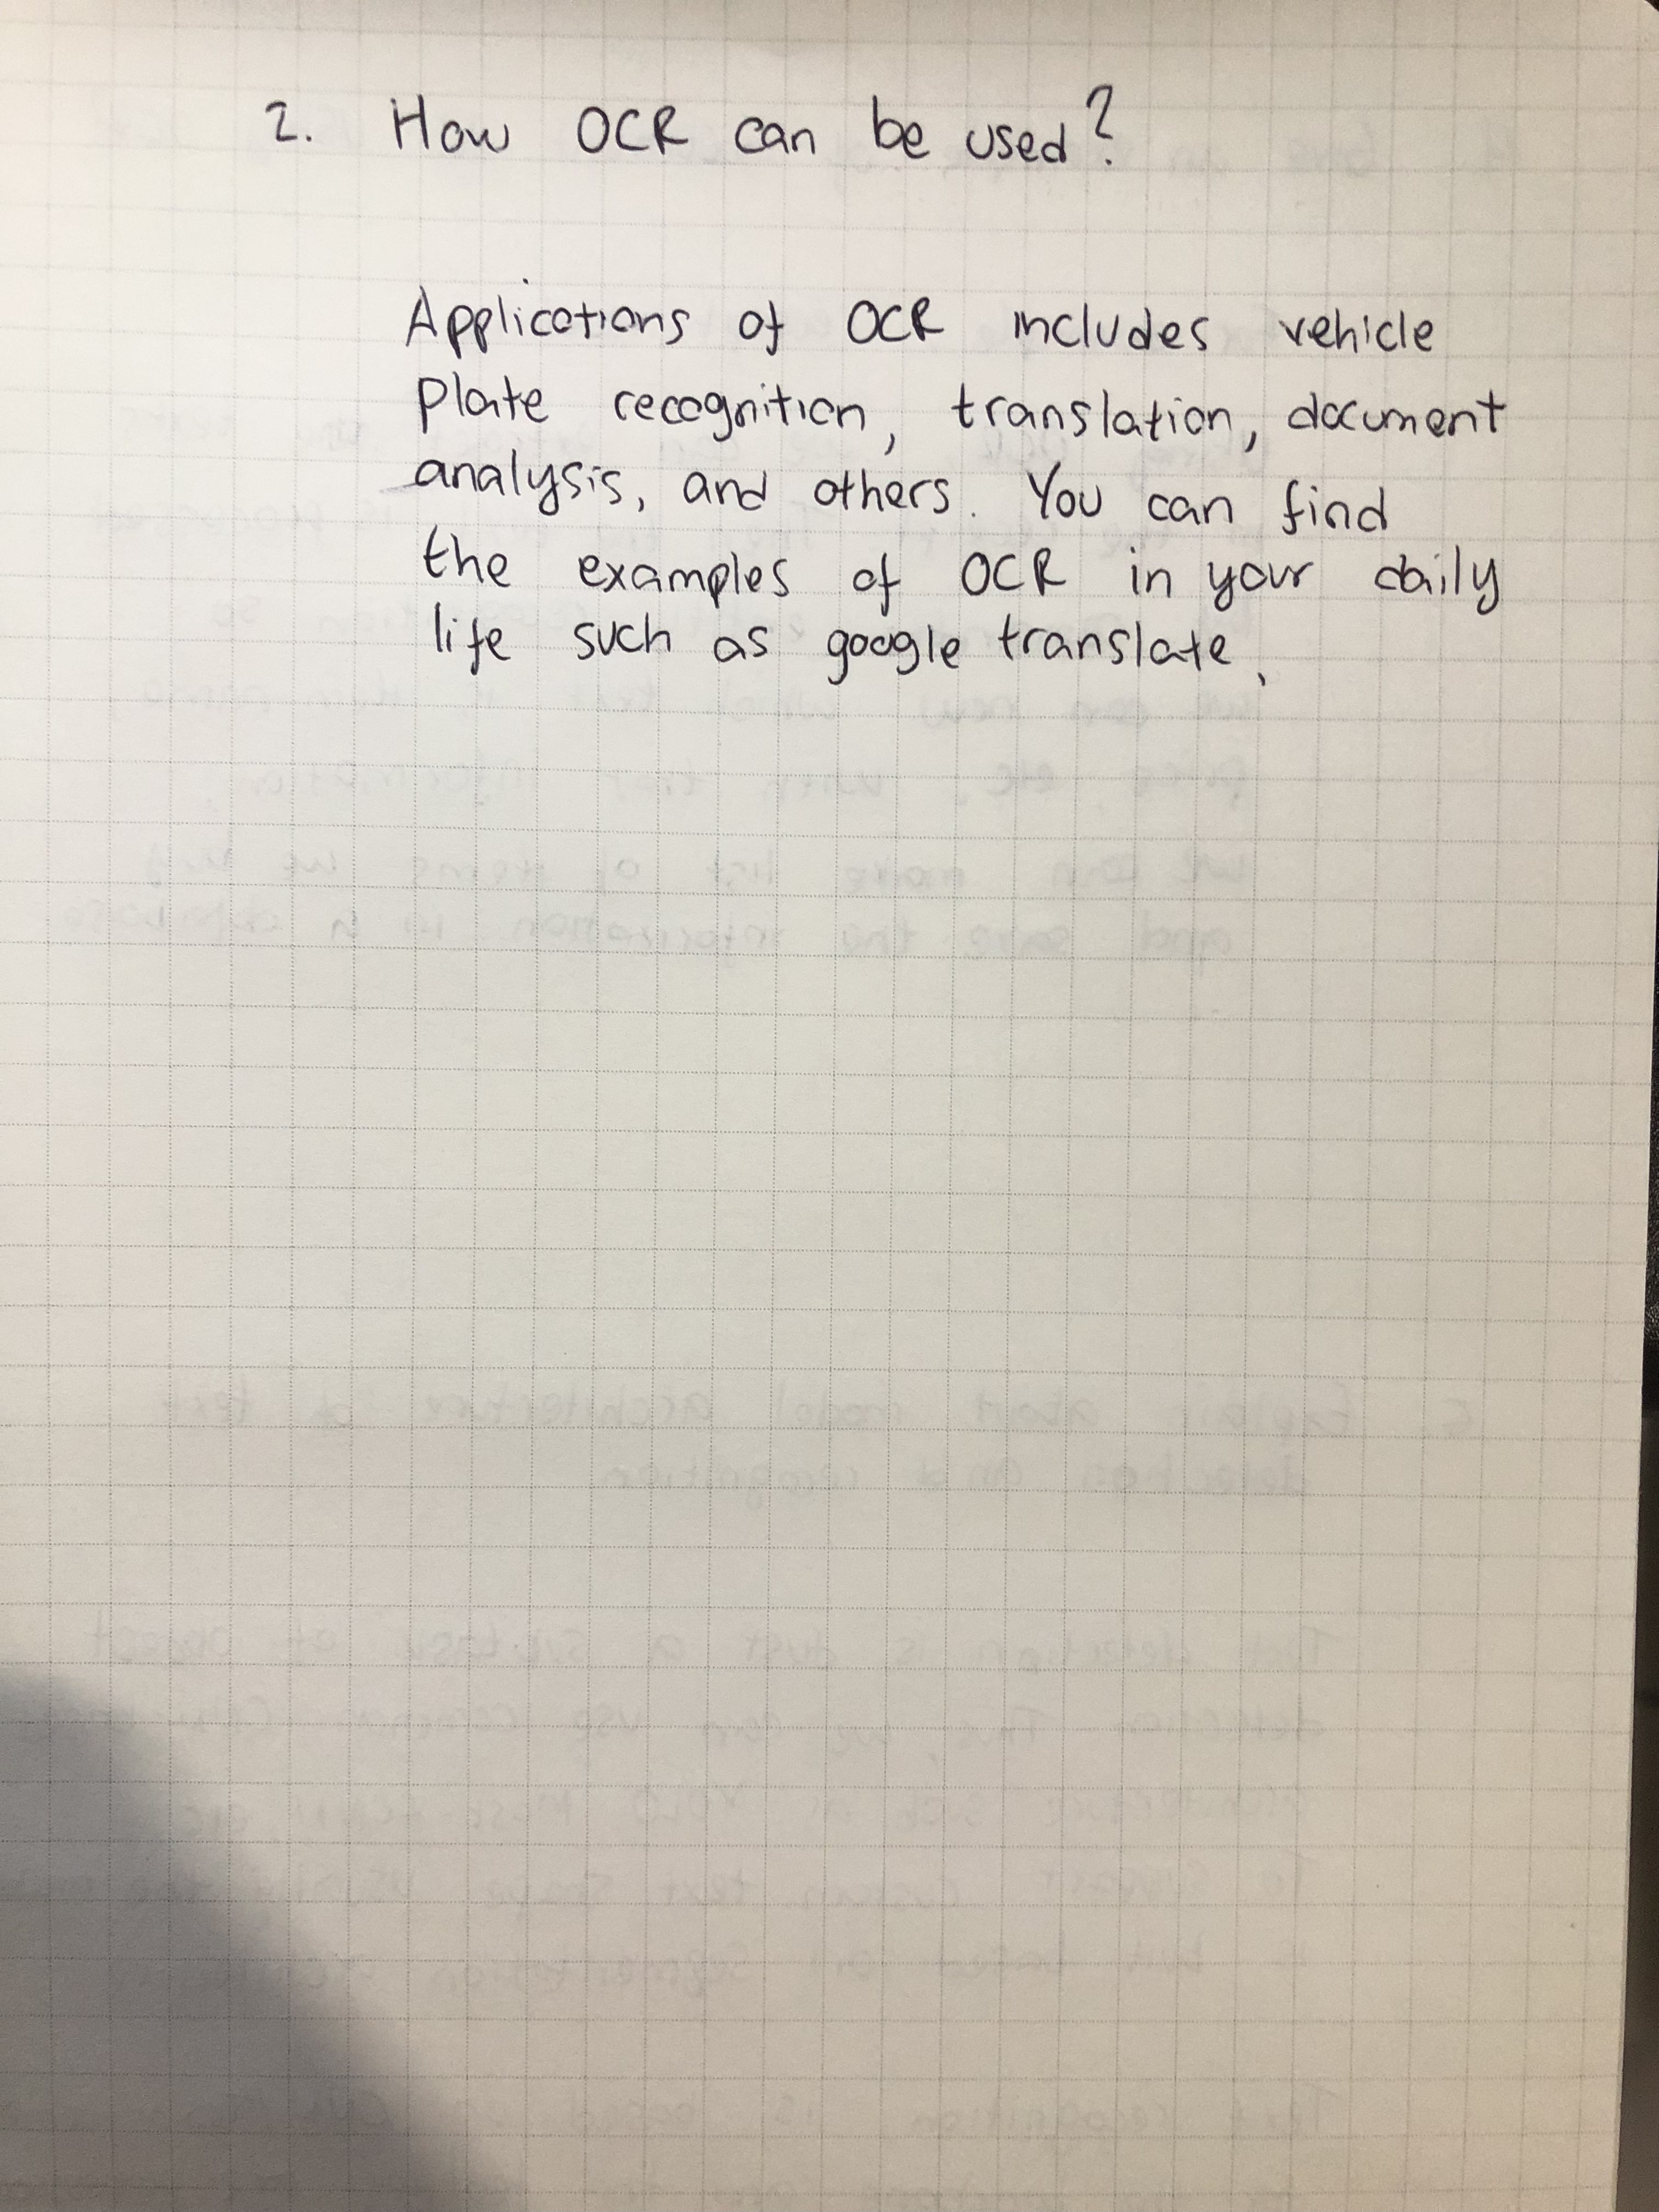 2. How OCR can be used?
Applications of OCR includes vehicle
plate recognition, translation, document
analysis, and others. You can find
the examples of OCR in your daily
life such as google translate.